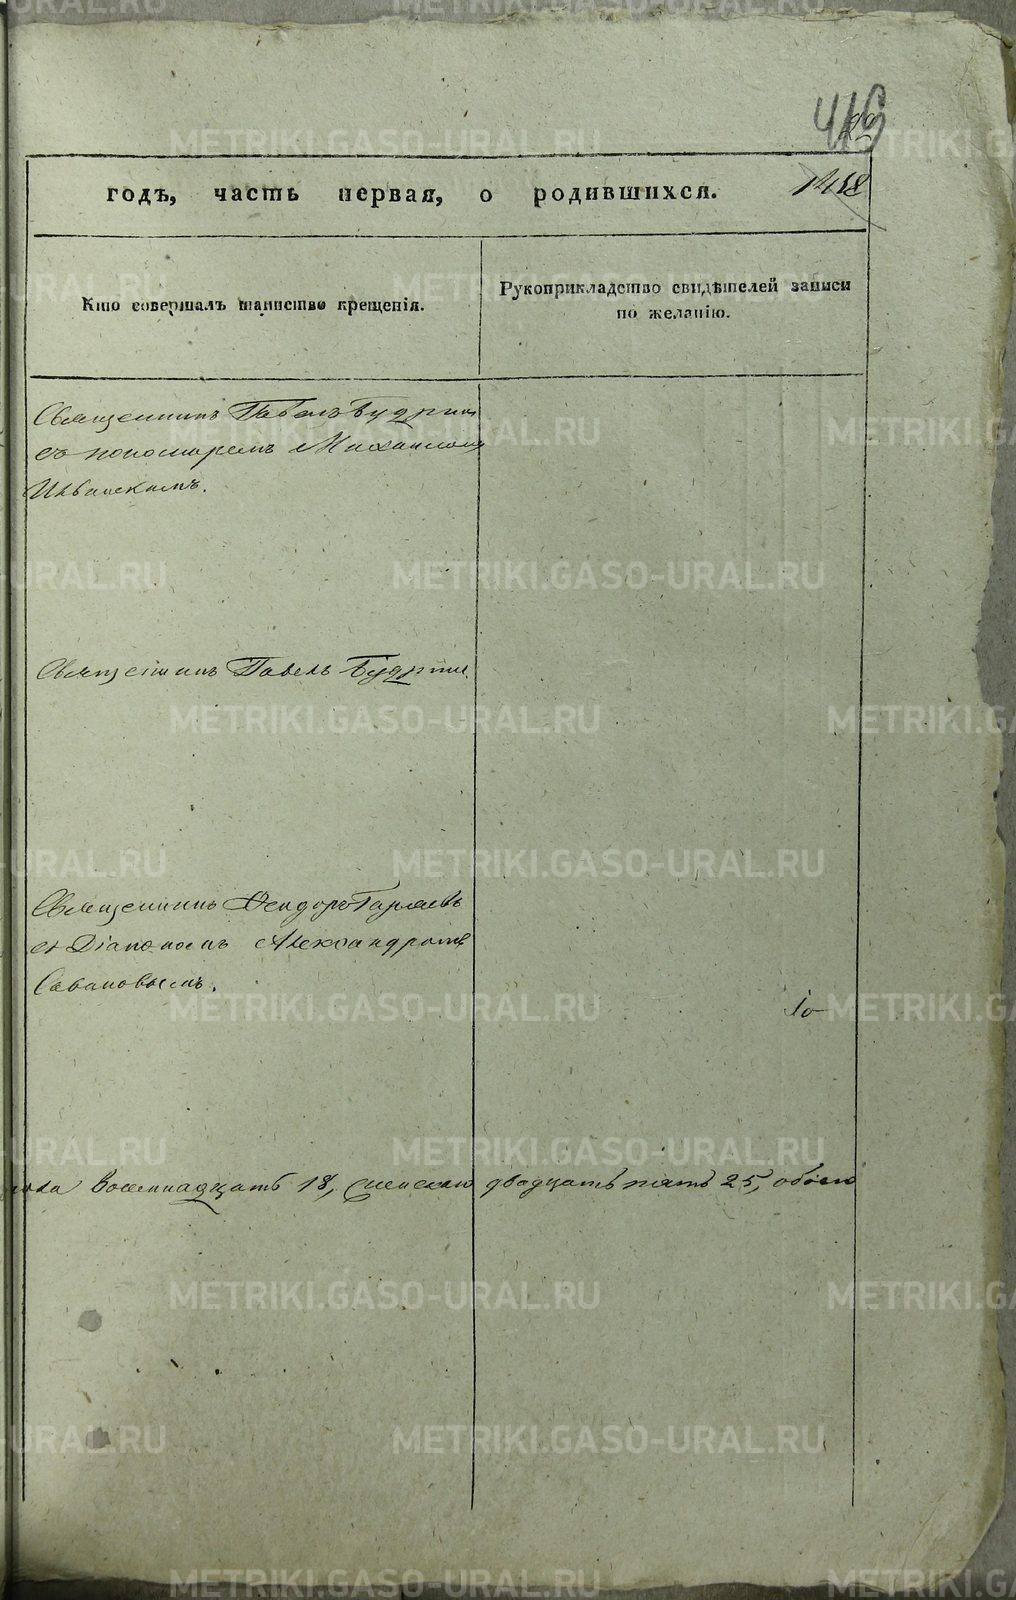 419
1418
годъ, часть первая, о родившихся.
Кто совершалъ таинство крещенія.
Рукоприкладство свидѣтелей записи
по желанію.
Священникъ Павелъ Будринъ
съ пономаремъ Михаиломъ
Ивановскимъ.
Священникъ Павелъ Будринъ.
Священникъ Феодоръ Гаряевъ
съ Діакономъ Александромъ
Савановымъ.
10
пола Восемнадцать 18, женскаго двадцать пять 25, обоего
METRIKI.GASO-URAL.RU